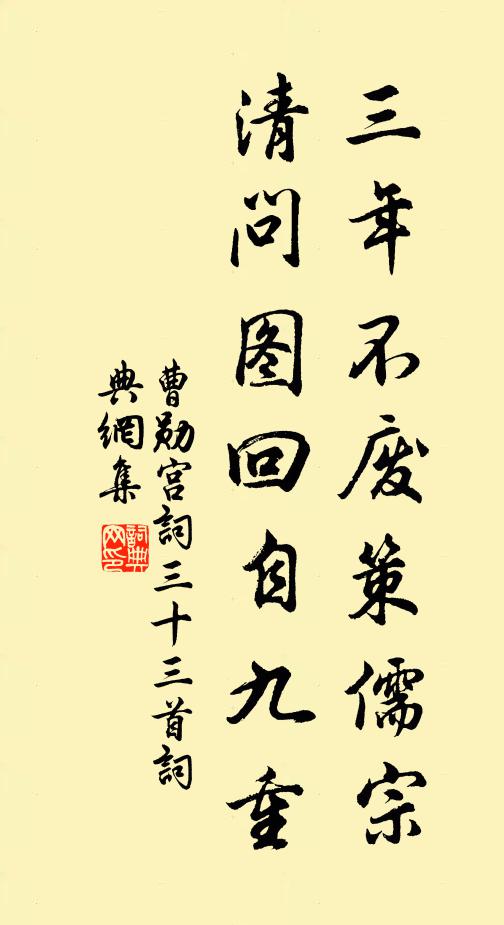 三年不废策儒宗
清问图回自九重
曹勋宫詞三十三首詞
典網集
詞典
网印